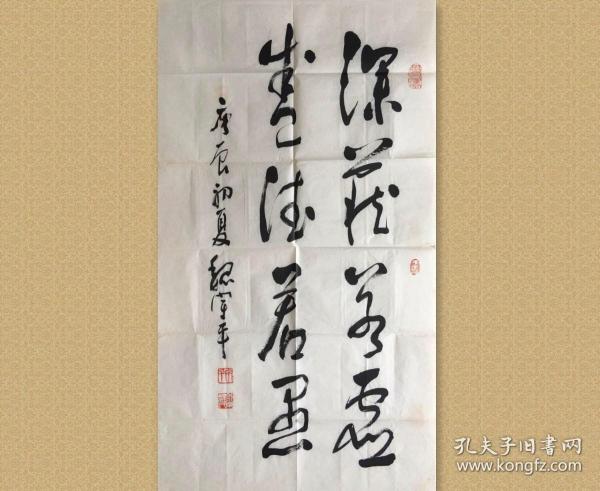 深藏若虚
盛德若愚
庚辰初夏 魏
孔夫子旧书网
www.kongfz.com